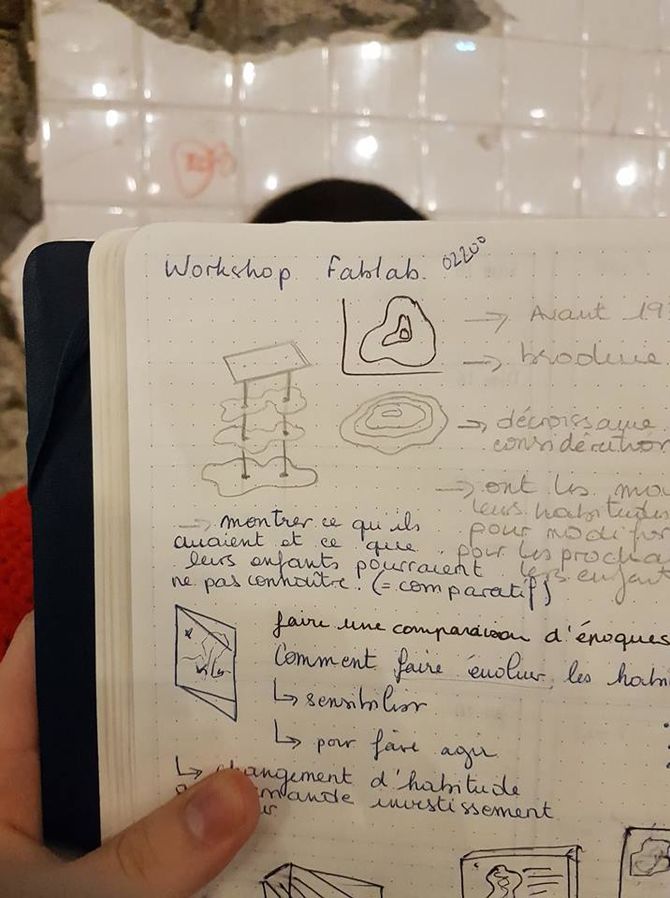 Workshop Fablab. 02200
→ Avant 19
→ broderie
→ décroissance
considération
→ ont les mo
leurs habitudes
pour modifier
pour les procha
leurs enfant
→ montrer ce qu'ils
avaient et ce que
leurs enfants pourraient
ne pas connaître. (= comparatif)
faire une comparaison d'époques
Comment faire évoluer les habi
↳ sensibiliser
↳ pour faire agir
↳ changement d'habitude
mande investissement